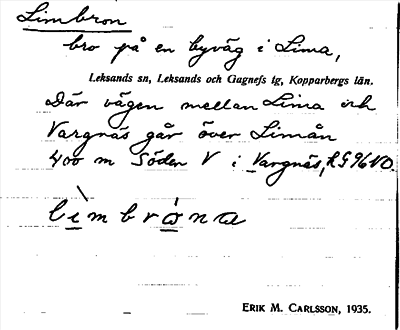 Limbron
bro på en byväg i Lima,
Leksands sn, Leksands och Gagnefs tg, Kopparbergs län.
Där vägen mellan Lima och
Vargnäs går över Limån
400 m Söder V i Vargnäs, RG96NO.
lìmbróna
ERIK M. CARLSSON, 1935.